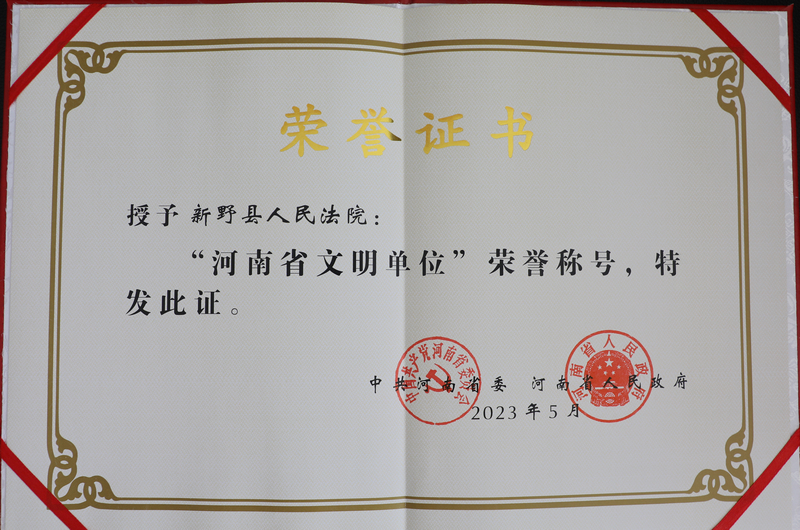 荣誉证书
授予 新野县人民法院：
“河南省文明单位”荣誉称号，特
发此证。
中国共产党河南省委员会
河南省人民政府
中共河南省委 河南省人民政府
2023年5月